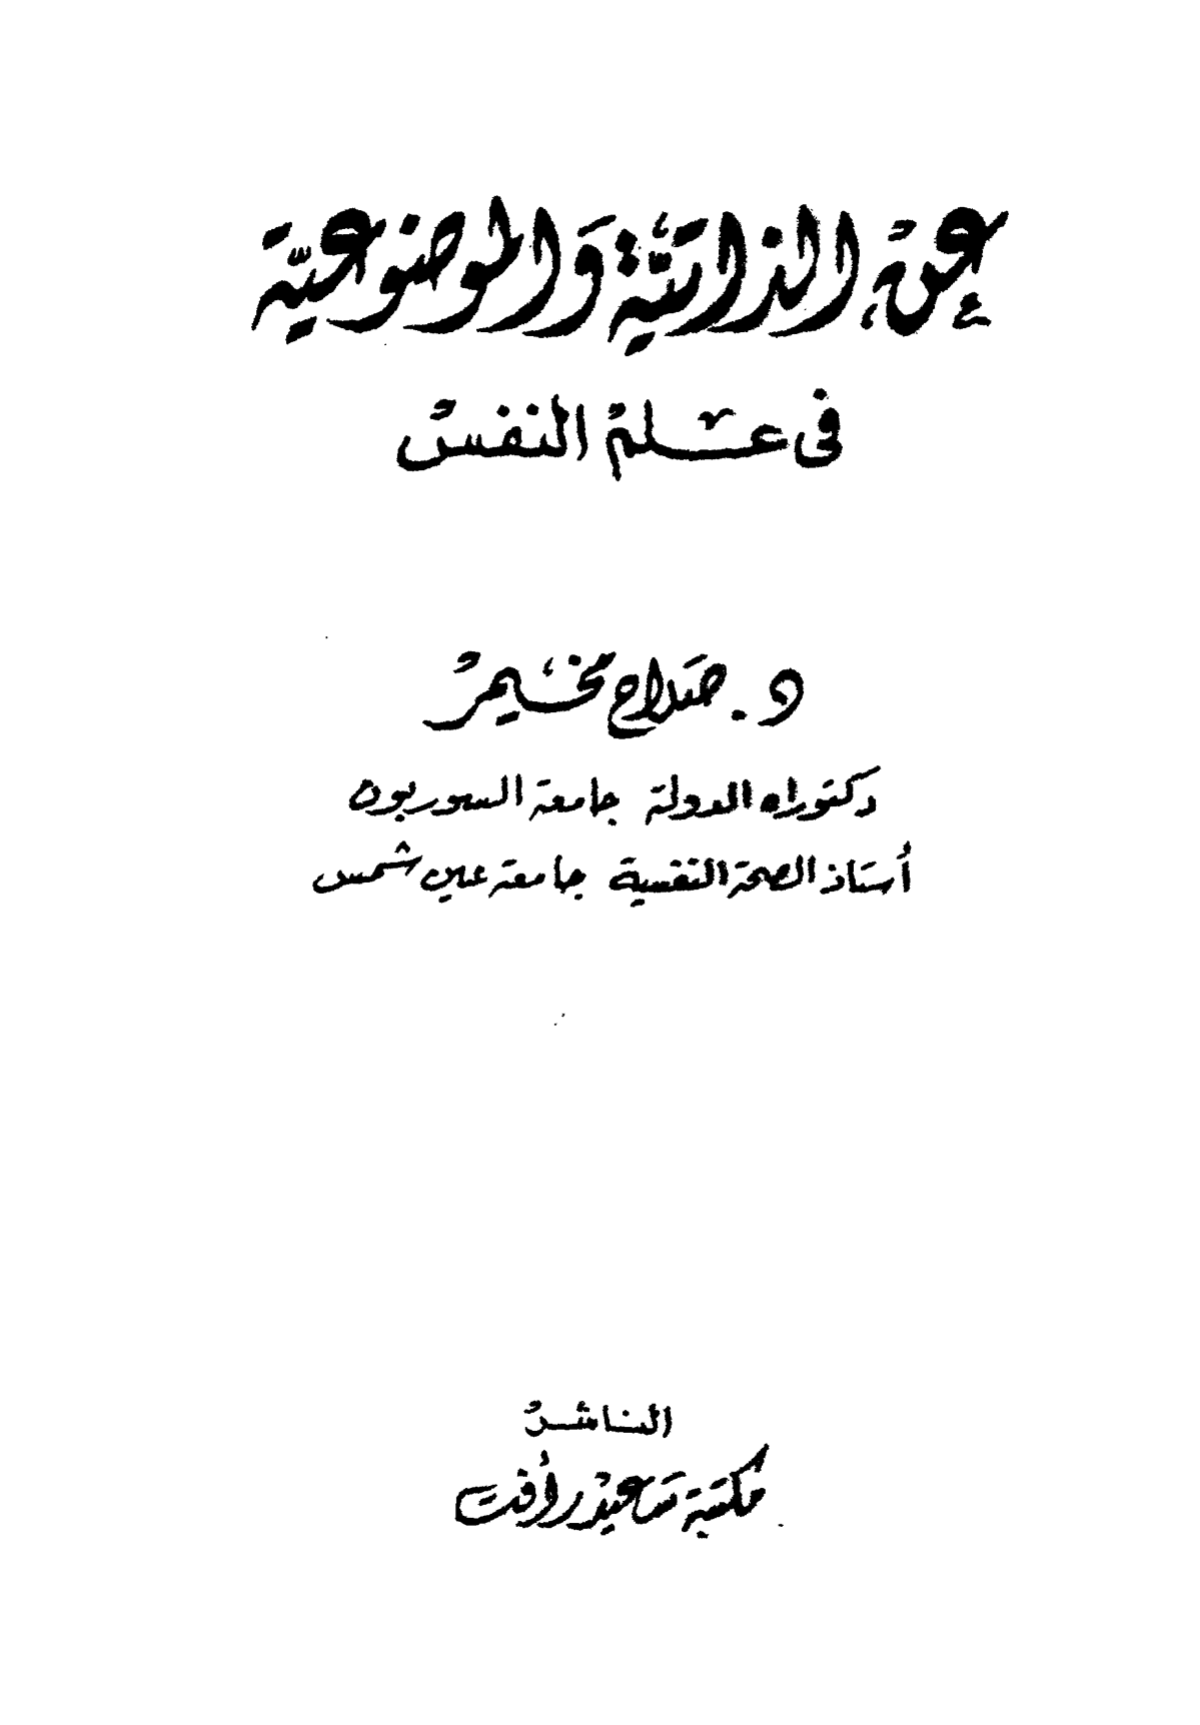 عن الذاتية والموضوعية
في علم النفس
د. صلاح مخيمر
دكتوراه الدولة جامعة السوربون
أستاذ الصحة النفسية جامعة عين شمس
الناشر
مكتبة سعيد رأفت